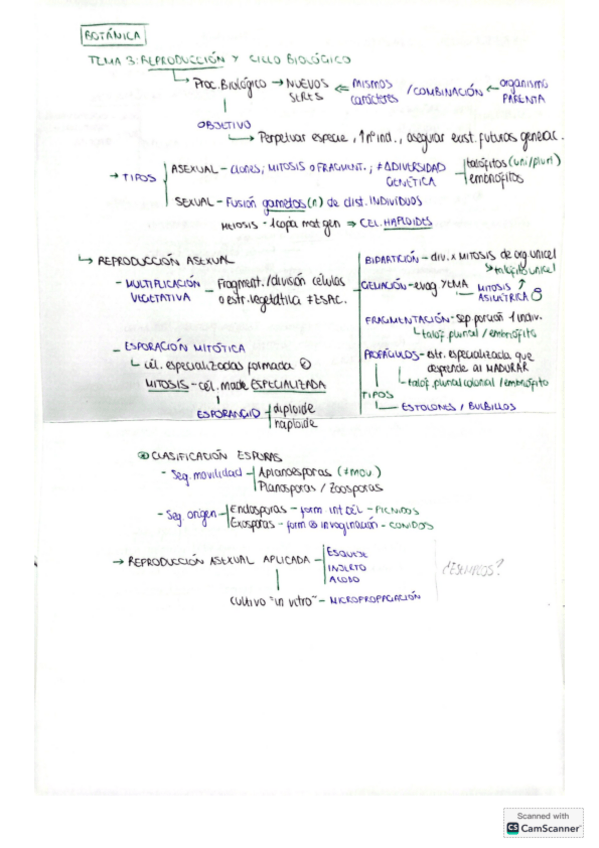 BOTÁNICA
TEMA 3: REPRODUCCIÓN Y CICLO BIOLÓGICO
Proc. Biológico → NUEVOS SERES ⇐ MISMOS caracteres / COMBINACIÓN ← organismo PARENTA
OBJETIVO
Perpetuar especie, ↑nº ind., asegurar exist. futuras generac.
→ TIPOS
ASEXUAL - clones; MITOSIS o FRAGMENT.; ≠ΔDIVERSIDAD GENÉTICA
talófitos (uni/pluri)
embriófitos
SEXUAL - Fusión gametos (n) de dist. INDIVIDUOS
MEIOSIS - 1 copia mat gen ⇒ CEL. HAPLOIDES
↳ REPRODUCCIÓN ASEXUAL
- MULTIPLICACIÓN VEGETATIVA - Fragment. / división células o estr. vegetativa ≠ ESPC.
BIPARTICIÓN - div. x MITOSIS de org unicel
↳ talóf unicel
GEMACIÓN - evag YEMA - MITOSIS ↑ ASIMÉTRICA
FRAGMENTACIÓN - sep porción 1 indiv.
↳ talóf. plurial / embriófito
PROPÁGULOS - estr. especializada que desprende al MADURAR
↳ talóf. plurial colonial / embriófito
TIPOS
ESTOLONES / BULBILLOS
- ESPORACIÓN MITÓTICA
↳ cél. especializadas formada
MITOSIS - cél. madre ESPECIALIZADA
ESPORANGIO
diploide
haploide
CLASIFICACIÓN ESPORAS
- Seg. movilidad
Aplanosporas (≠ MOV)
Planosporas / Zoosporas
- Seg. origen
Endosporas - form int cél - PICNIDOS
Exosporas - form invaginación - CONIDIOS
→ REPRODUCCIÓN ASEXUAL APLICADA
ESQUEJE
INJERTO
ACODO
cultivo "in vitro" - MICROPROPAGACIÓN
¿EJEMPLOS?
Scanned with
CS CamScanner